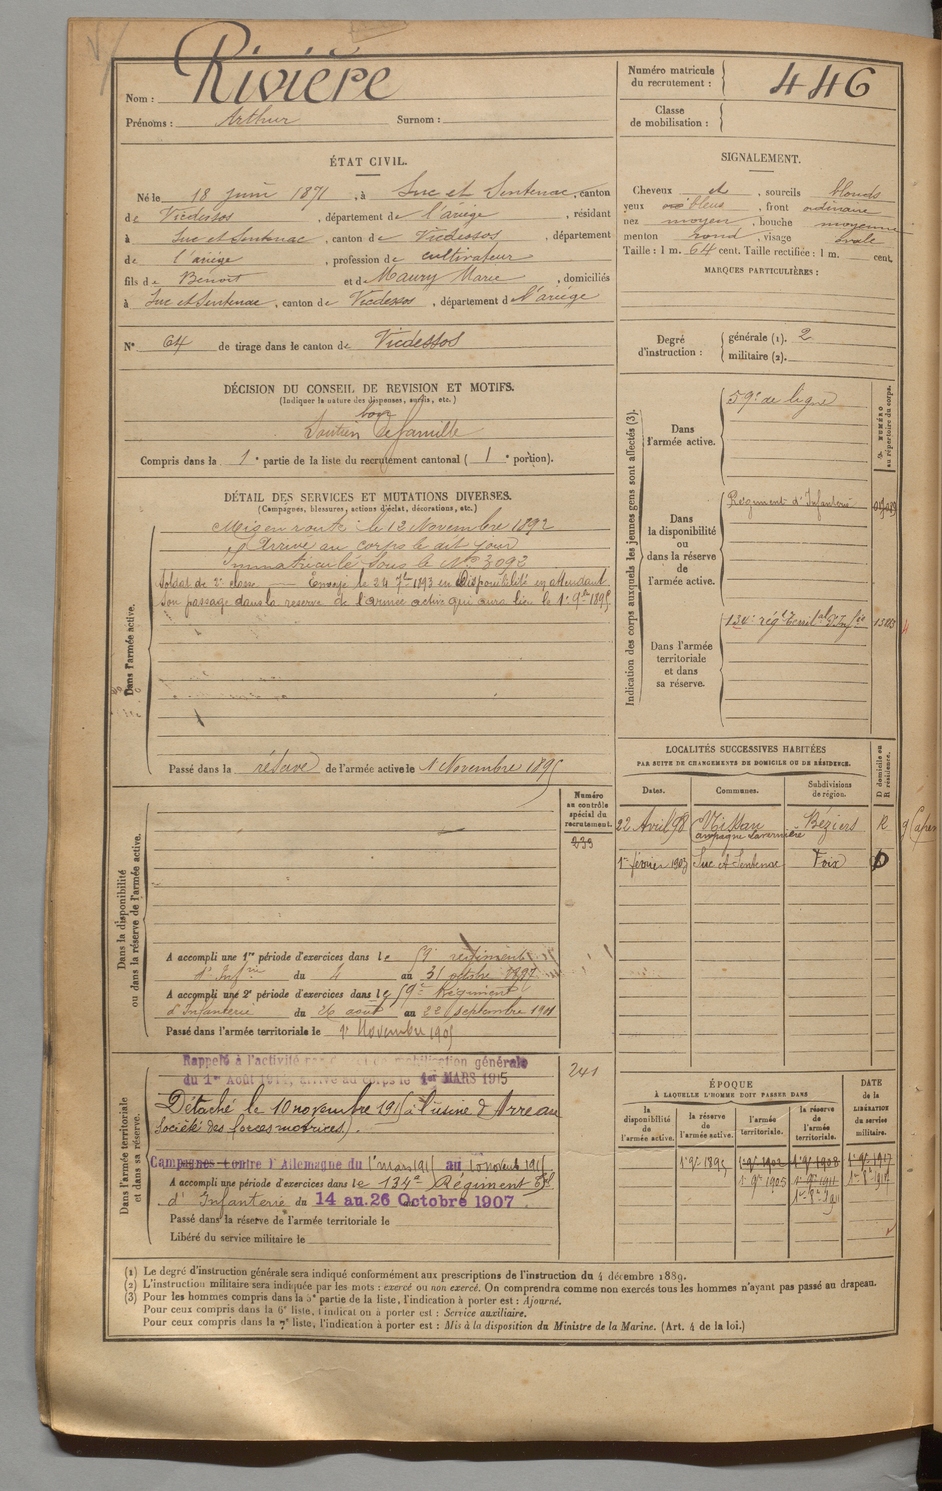 Rivière
Nom :
Prénoms : Arthur Surnom :
Numéro matricule du recrutement : 446
Classe de mobilisation :
ÉTAT CIVIL.
Né le 18 juin 1871, à Suc et Sentenac, canton
de Vicdessos, département de l'ariège, résidant
à Suc et Sentenac, canton de Vicdessos, département
de l'ariège, profession de cultivateur
fils de Benoit et de Maury Marie, domiciliés
à Suc et Sentenac, canton de Vicdessos, département d l'ariège
N° 64 de tirage dans le canton de Vicdessos
SIGNALEMENT.
Cheveux et, sourcils blonds
yeux bleus, front ordinaire
nez moyen, bouche moyenne
menton rond, visage ovale
Taille : 1 m. 64 cent. Taille rectifiée : 1 m. cent.
MARQUES PARTICULIÈRES :
Degré d'instruction : générale (1). 2
militaire (2).
DÉCISION DU CONSEIL DE REVISION ET MOTIFS.
(Indiquer la nature des dispenses, sursis, etc.)
bon
Soutien de famille
Compris dans la 1e partie de la liste du recrutement cantonal ( 1e portion).
DÉTAIL DES SERVICES ET MUTATIONS DIVERSES.
(Campagnes, blessures, actions d'éclat, décorations, etc.)
Dans l'armée active.
Mis en route le 12 Novembre 1892
Arrivé au corps le dit jour
Immatriculé sous le N° 3092
Soldat de 2e classe. — Envoyé le 24 7bre 1893 en Disponibilité en attendant
Son passage dans la reserve de l'armée active qui aura lieu le 1er 9bre 1895
Passé dans la réserve de l'armée active le 1 Novembre 1895
Indication des corps auxquels les jeunes gens sont affectés (3).
NUMÉRO au répertoire du corps.
Dans l'armée active.
59e de ligne
Dans la disponibilité ou dans la réserve de l'armée active.
Régiment d'Infanterie
Dans l'armée territoriale et dans sa réserve.
134e régt territal d'Infie
LOCALITÉS SUCCESSIVES HABITÉES
PAR SUITE DE CHANGEMENTS DE DOMICILE OU DE RÉSIDENCE.
Dates. Communes. Subdivisions de région. D domicile ou R résidence.
22 Avril 98 Nissan Béziers R
Campagne
1er février 1903 Suc et Sentenac Foix D
Dans la disponibilité ou dans la réserve de l'armée active.
Numéro au contrôle spécial du recrutement.
239
A accompli une 1re période d'exercices dans le 59e régiment
d'Infrie du 4 au 31 octobre 1897
A accompli une 2e période d'exercices dans le 59e Régiment
d'Infanterie du 26 août au 22 septembre 1901
Passé dans l'armée territoriale le 1er Novembre 1905
Dans l'armée territoriale et dans sa réserve.
241
Rappelé à l'activité mobilisation générale
du 1er Août 1914, arrivé au corps le 1er MARS 1915
Détaché le 10 novembre 1915 à l'usine d'Arreau
Société des forces motrices).
Campagnes contre l'Allemagne du 1er mars 1915 au 10 novembre 1915
A accompli une période d'exercices dans le 134e Régiment
d'Infanterie du 14 au 26 Octobre 1907.
Passé dans la réserve de l'armée territoriale le
Libéré du service militaire le
ÉPOQUE
À LAQUELLE L'HOMME DOIT PASSER DANS
la disponibilité de l'armée active. la réserve de l'armée active. l'armée territoriale. la réserve de l'armée territoriale.
DATE de la LIBÉRATION du service militaire.
1er 9e 1895 1er 9e 1902 1er 9e 1908 1er 9e 1917
1er 9e 1905 1er 9e 1911
(1) Le degré d'instruction générale sera indiqué conformément aux prescriptions de l'instruction du 4 décembre 1889.
(2) L'instruction militaire sera indiquée par les mots : exercé ou non exercé. On comprendra comme non exercés tous les hommes n'ayant pas passé au drapeau.
(3) Pour les hommes compris dans la 3e partie de la liste, l'indication à porter est : Ajourné.
Pour ceux compris dans la 6e liste, l'indication à porter est : Service auxiliaire.
Pour ceux compris dans la 7e liste, l'indication à porter est : Mis à la disposition du Ministre de la Marine. (Art. 4 de la loi.)